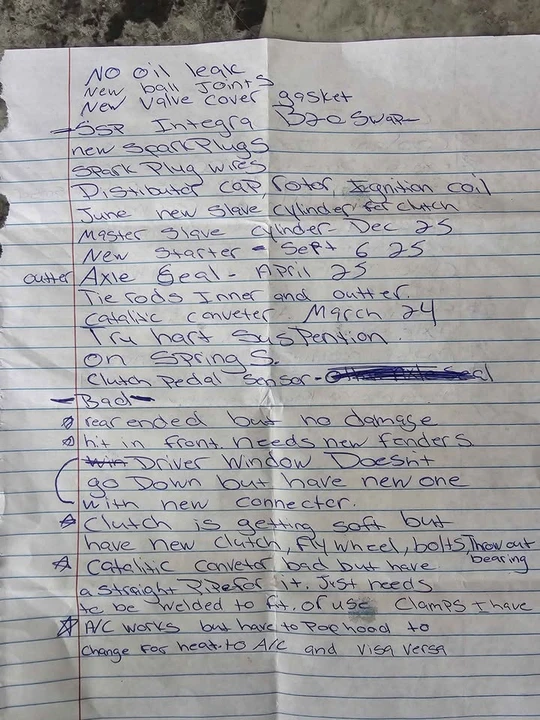 NO oil leak
New ball Joints
New Valve cover gasket
- SSP Integra B20 Swap
new SparkPlugs
Spark Plug wires
Distributor cap, rotor, Iegnition coil
June new Slave cylinder for clutch
Master Slave cylinder Dec 25
New Starter - Sept 6 25
outter Axle Seal - April 25
Tie rods Inner and outter.
catalitic conveter. March 24
Tru hart Suspention
on Springs.
Clutch Pedal Sensor -
- Bad -
☆ rear ended but no damage
☆ hit in front. Needs new fenders
Driver Window Doesn't
go Down but have new one
with new connecter.
☆ Clutch is getting soft but
have new Clutch, Flywheel, bolts, Throw out bearing
☆ Catalitic Convetor bad but have
a straight Pipe for it. Just needs
to be welded to fit. or use Clamps I have
☆ A/C works but have to Pop hood to
change for heat. to A/C and visa versa